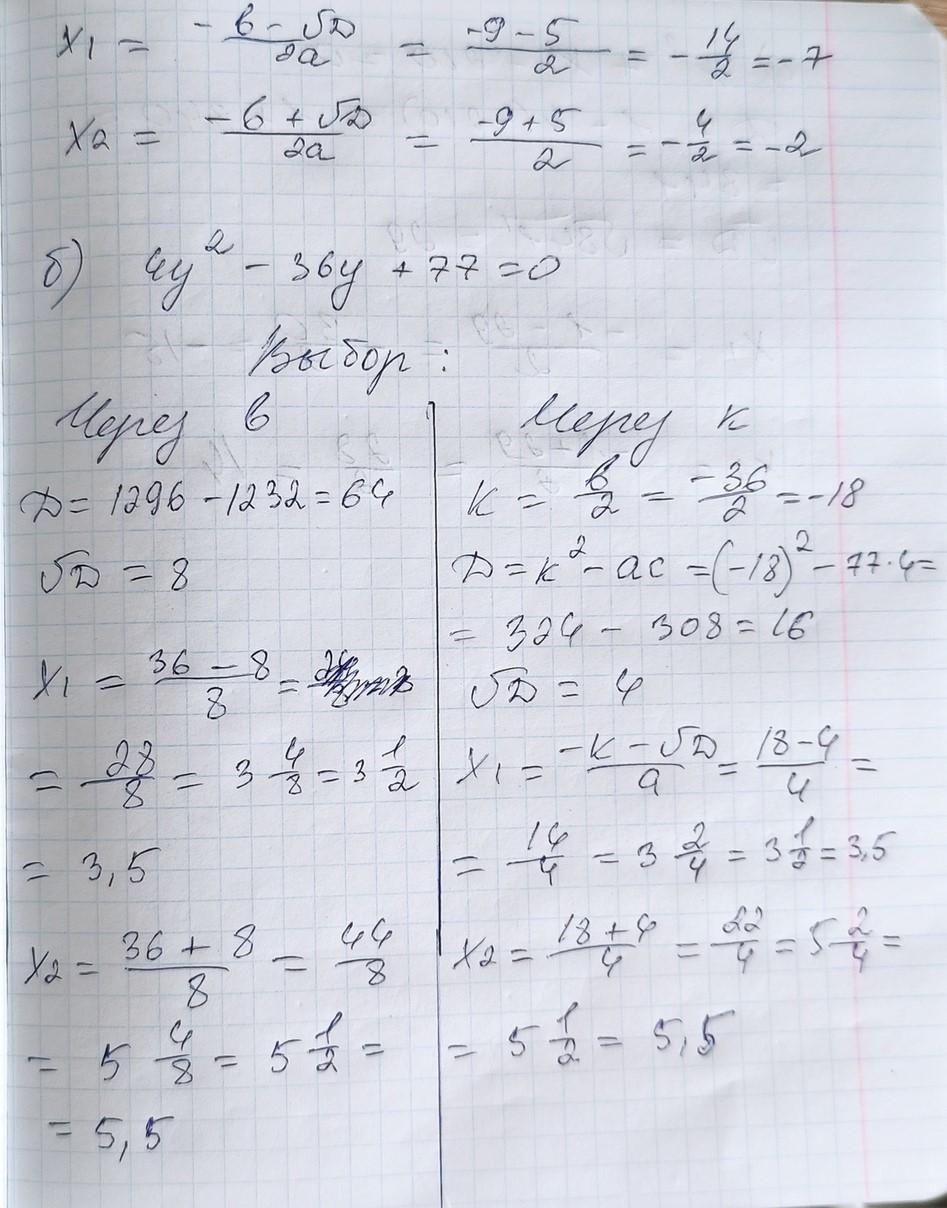 x₁ = (-b - √D)/2a = (-9 - 5)/2 = -14/2 = -7
x₂ = (-b + √D)/2a = (-9 + 5)/2 = -4/2 = -2
б) 4y² - 36y + 77 = 0
Выбор:
Через b
D = 1296 - 1232 = 64
√D = 8
x₁ = (36 - 8)/8 =
= 28/8 = 3 4/8 = 3 1/2
= 3,5
x₂ = (36 + 8)/8 = 44/8
= 5 4/8 = 5 1/2 =
= 5,5
Через k
k = b/2 = -36/2 = -18
D = k² - ac = (-18)² - 77·4 =
= 324 - 308 = 16
√D = 4
x₁ = (-k - √D)/a = (18 - 4)/4 =
= 14/4 = 3 2/4 = 3 1/2 = 3,5
x₂ = (18 + 4)/4 = 22/4 = 5 2/4 =
= 5 1/2 = 5,5